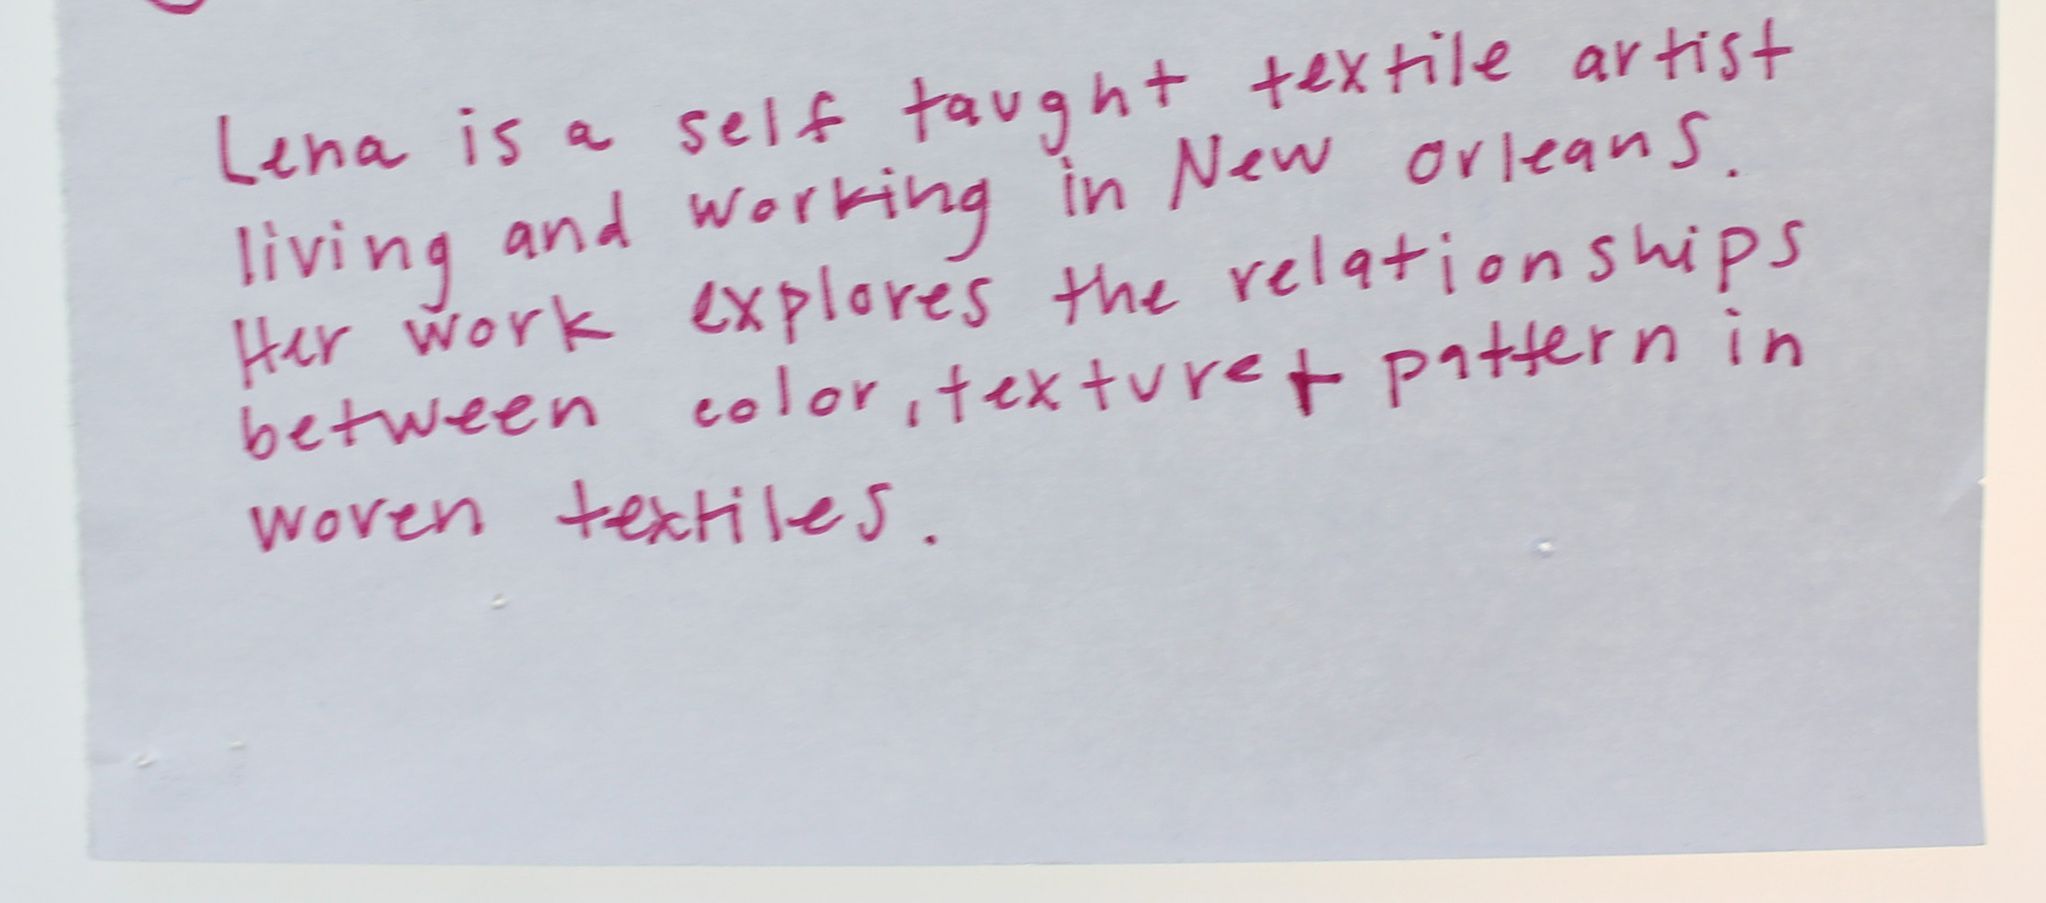 Lena is a self taught textile artist
living and working in New Orleans.
Her work explores the relationships
between color, texture + pattern in
woven textiles.